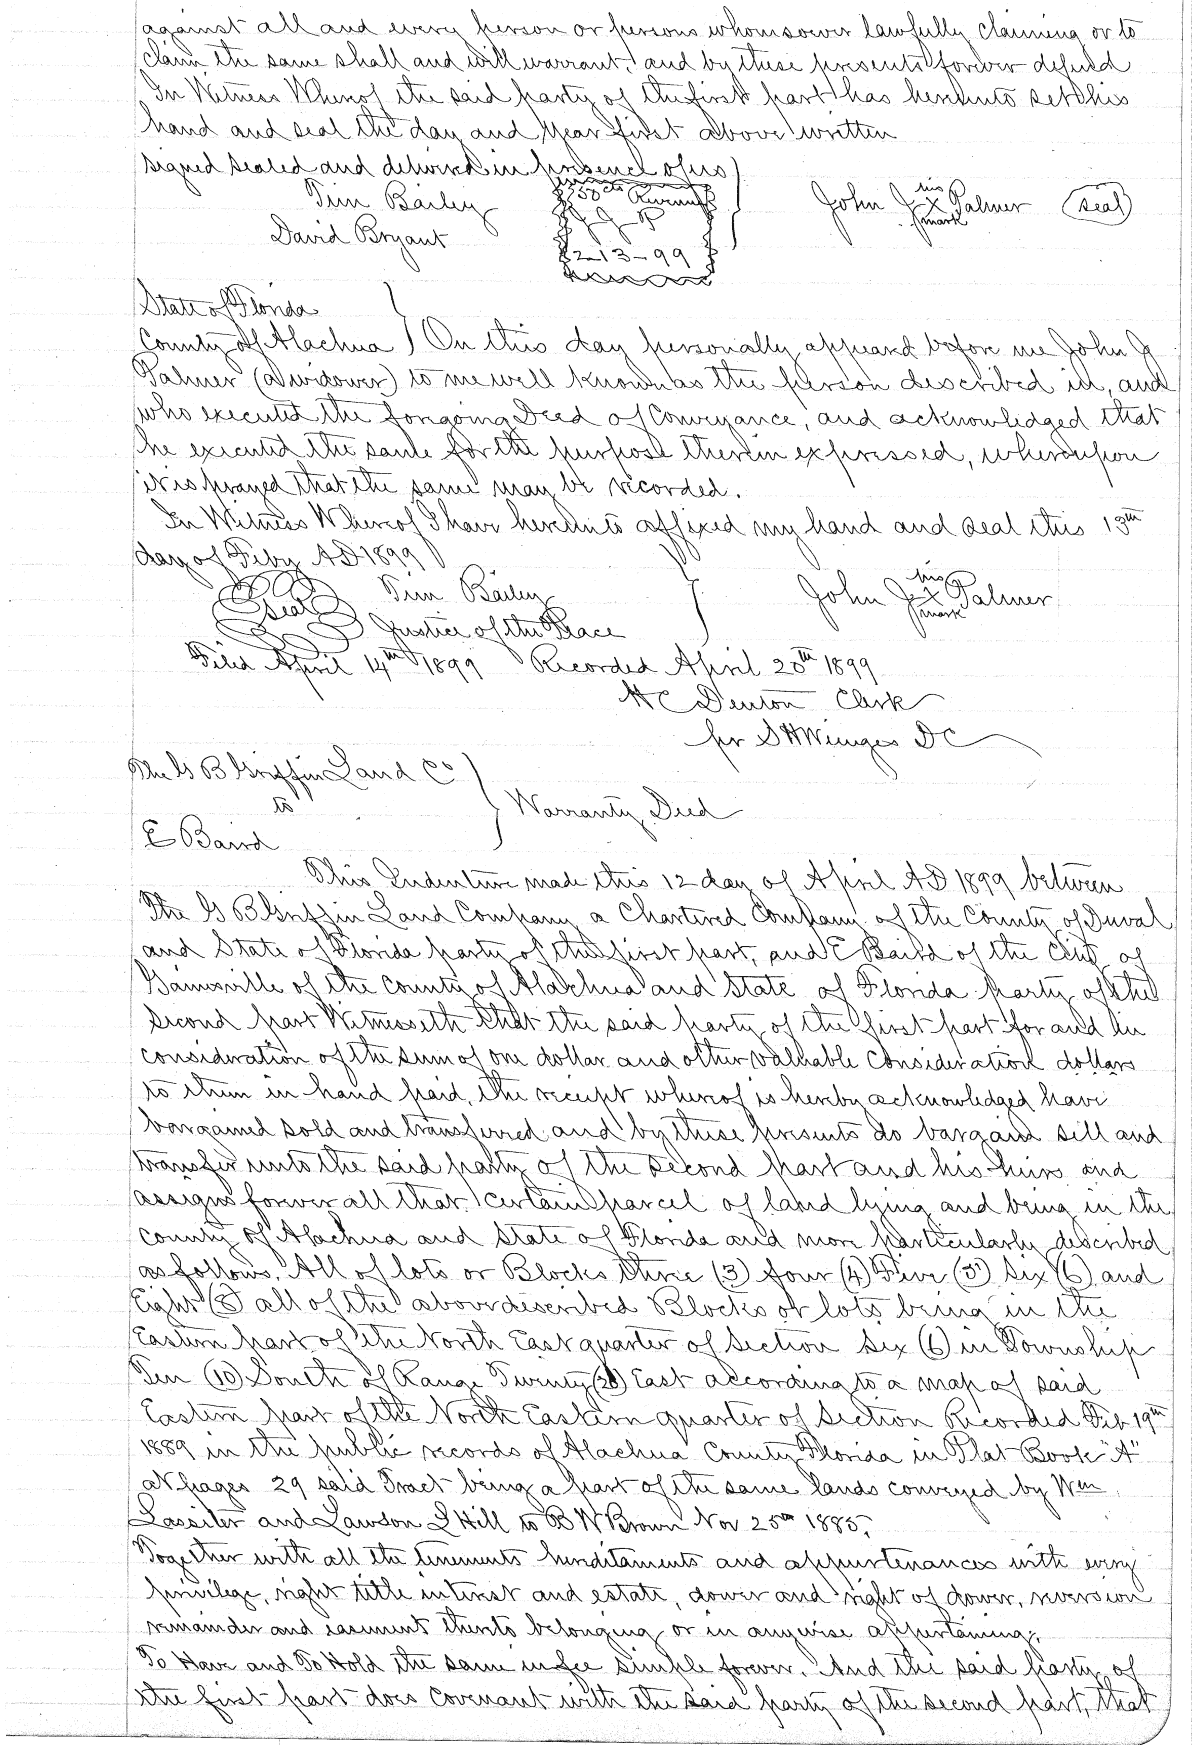 against all and every person or persons whomsoever lawfully claiming or to
claim the same shall and will warrant, and by these presents forever defend
In Witness Whereof the said party of the first part has hereunto set his
hand and seal the day and year first above written
signed sealed and delivered in presence of us
Tim Bailey
David Bryant
50 cts Revenue
J J P
2-13-99
John J his X mark Palmer (seal)
State of Florida
County of Alachua } On this day personally appeard before me John J
Palmer (a widower) to me well known as the person described in, and
who executed the forgoing Deed of Conveyance, and acknowledged that
he executed the same for the purpose therein expressed, whereupon
it is prayed that the same may be recorded.
In Witness Whereof I have hereunto affixed my hand and seal this 13th
day of Feby AD 1899
Seal Tim Bailey
Justice of the Peace
John J his X mark Palmer
Filed April 14th 1899 Recorded April 20th 1899
H C Denton Clerk
pr S H Wienges DC
The G B Griffin Land Co
to
Warranty Deed
E Baird
This Indenture made this 12 day of April AD 1899 between
The G B Griffin Land Company a Chartered Company of the County of Duval
and State of Florida party of the first part, and E Baird of the City of
Gainesville of the county of Alachua and State of Florida party of the
second part Witnesseth that the said party of the first part for and in
consideration of the sum of one dollar and other valuable consideration dollars
to them in hand paid, the receipt whereof is hereby acknowledged have
bargained sold and transferred and by these presents do bargain sell and
transfer unto the said party of the second part and his heirs and
assigns forever all that certain parcel of land lying and being in the
county of Alachua and State of Florida and more particularly described
as follows, All of lots or Blocks three (3) four (4) Five (5) Six (6) and
Eight (8) all of the above described Blocks or lots being in the
Eastern part of the North East quarter of Section Six (6) in Township
Ten (10) South of Range Twenty (20) East according to a map of said
Eastern part of the North Eastern quarter of Section Recorded Feb 19th
1889 in the public records of Alachua County Florida in Plat Book "A"
at pages 29 said Tract being a part of the same lands conveyed by Wm
Lassiter and Lawson L Hill to B W Brown Nov 25th 1885,
Together with all the tenements hereditaments and appurtenances with every
privilege, right title interest and estate, dower and right of dower, reversion
remainder and easment thereto belonging or in anywise appertaining;
To Have and To Hold the same in fee simple forever. And the said party of
the first part does covenant with the said party of the second part, that